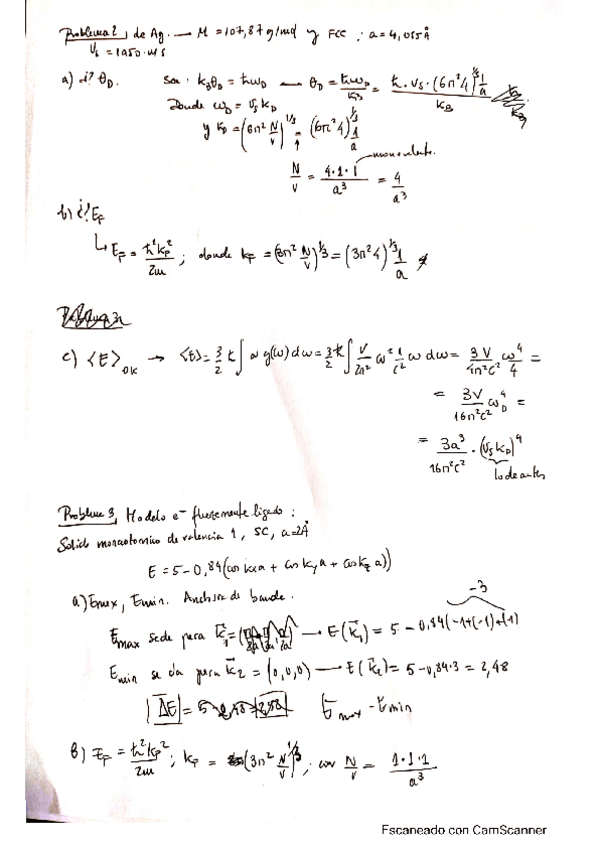 Problema 2, de Ag. → M = 107,87 g/mol y FCC ; a = 4,085 Å
Vs = 1950 m/s
a) ¿? θD. k_B θD = ħωD → θD = ħωD/k_B = ħ·vs·(6π²4)^{1/3} 1/a / k_B
Donde ωD = vs kD
y kD = (6π² N/V)^{1/3} = (6π²4)^{1/3} 1/a
N/V = 4·1·1/a³ = 4/a³
b) ¿? E_F
↳ E_F = ħ²k_F²/2m ; donde k_F = (3π² N/V)^{1/3} = (3π²4)^{1/3} 1/a
c) <E>_{0K} → <E> = 3/2 ħ ∫ ω g(ω) dω = 3/2 ħ ∫ V/2π² ω² 1/c² ω dω = 3V/4π²c² ω⁴/4 =
= 3V/16π²c² ωD⁴ =
= 3a³/16π²c² · (vs kD)⁴
lo de antes
Problema 3, Modelo e⁻ fuertemente ligado :
Solido monoatomico de valencia 1, SC, a = 2Å
E = 5 - 0,84(cos kxa + cos kya + cos kza))
a) Emax, Emin. Anchura de banda.
-3
Emax se da para k₁ = → E(k₁) = 5 - 0,84(-1+(-1)+(-1)
Emin se da para k₂ = (0,0,0) → E(k₂) = 5 - 0,84·3 = 2,48
|ΔE| = Emax - Emin
b) E_F = ħ²k_F²/2m ; k_F = (3π² N/V)^{1/3} ; con N/V = 1·1·1/a³
Escaneado con CamScanner